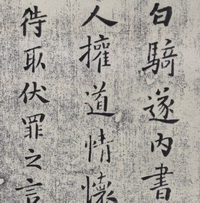 白騎遂內書
人擁道情懷
待取伏罪之言